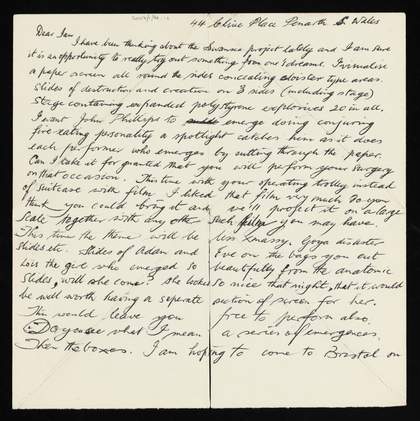 44 Clive Place Penarth S. Wales
Dear Ian
I have been thinking about the Swansea project lately and I am sure
it is an opportunity to really try out something from our dreams. I visualise
a paper screen all round the sides concealing cloister type areas.
Slides of destruction and creation on 3 sides (including stage)
Stage containing expanded polystyrene explosives 20 in all.
I want John Phillips to emerge doing conjuring
fire-eating personality a spotlight catches him as it does
each performer who emerges by cutting through the paper.
Can I take it for granted that you will perform your surgery
on that occasion. This time with your operating trolley instead
of suitcase with film. I liked that film very much do you
think you could bring it and we'll project it on a large
scale together with any other such you may have
This time the theme will be less Xmassy. Goya disaster
slides etc. Slides of Adam and Eve on the bags you cut
Lois the girl who emerged so beautifully from the anatomic
slides, will she come? she looked so nice that night, that it would
be well worth having a seperate section of screen for her.
This would leave you free to perform also.
Do you see what I mean a series of emergences.
Then the boxes. I am hoping to come to Bristol on